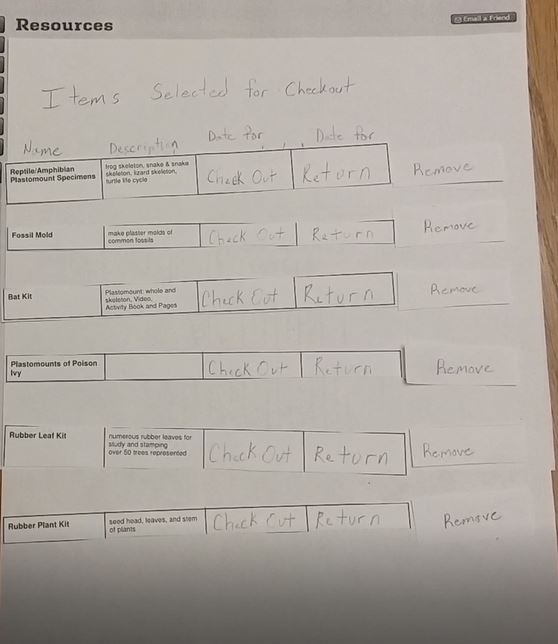 Resources
Email a Friend
Items Selected for Checkout
Name Description Date for Date for
Reptile/Amphibian
Plastomount Specimens
frog skeleton, snake & snake
skeleton, lizard skeleton,
turtle life cycle
Check Out Return Remove
Fossil Mold
make plaster molds of
common fossils
Check Out Return Remove
Bat Kit
Plastomount: whole and
skeleton, Video,
Activity Book and Pages
Check Out Return Remove
Plastomounts of Poison
Ivy
Check Out Return Remove
Rubber Leaf Kit
numerous rubber leaves for
study and stamping
over 50 trees represented
Check Out Return Remove
Rubber Plant Kit
seed head, leaves, and stem
of plants
Check Out Return Remove